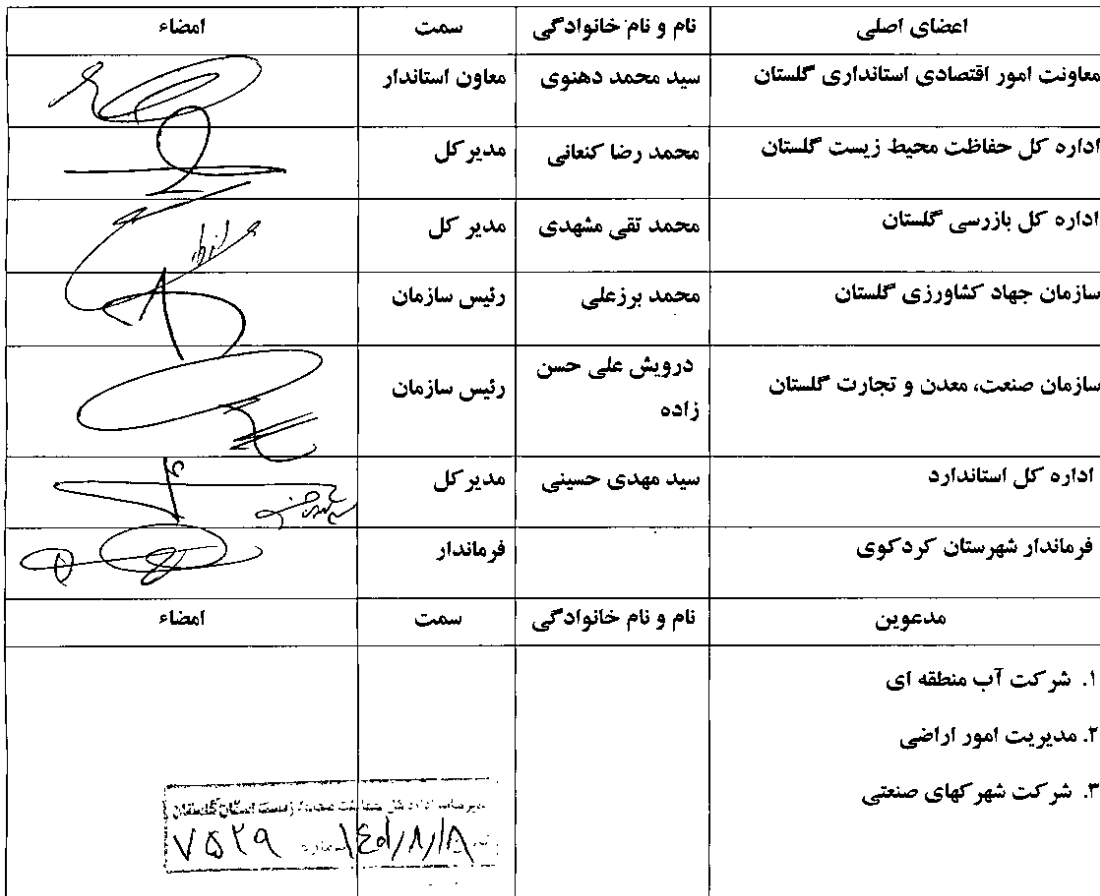 اعضای اصلی	نام و نام خانوادگی	سمت	امضاء
معاونت امور اقتصادی استانداری گلستان	سید محمد دهنوی	معاون استاندار
اداره کل حفاظت محیط زیست گلستان	محمد رضا کنعانی	مدیر کل
اداره کل بازرسی گلستان	محمد تقی مشهدی	مدیر کل
سازمان جهاد کشاورزی گلستان	محمد برزعلی	رئیس سازمان
سازمان صنعت، معدن و تجارت گلستان	درویش علی حسن	رئیس سازمان
زاده
اداره کل استاندارد	سید مهدی حسینی	مدیر کل
فرماندار شهرستان کردکوی	فرماندار
مدعوین	نام و نام خانوادگی	سمت	امضاء
۱. شرکت آب منطقه ای
۲. مدیریت امور اراضی
۳. شرکت شهرکهای صنعتی
۱۴۰۱/۸/۱۸
۷۵۲۹